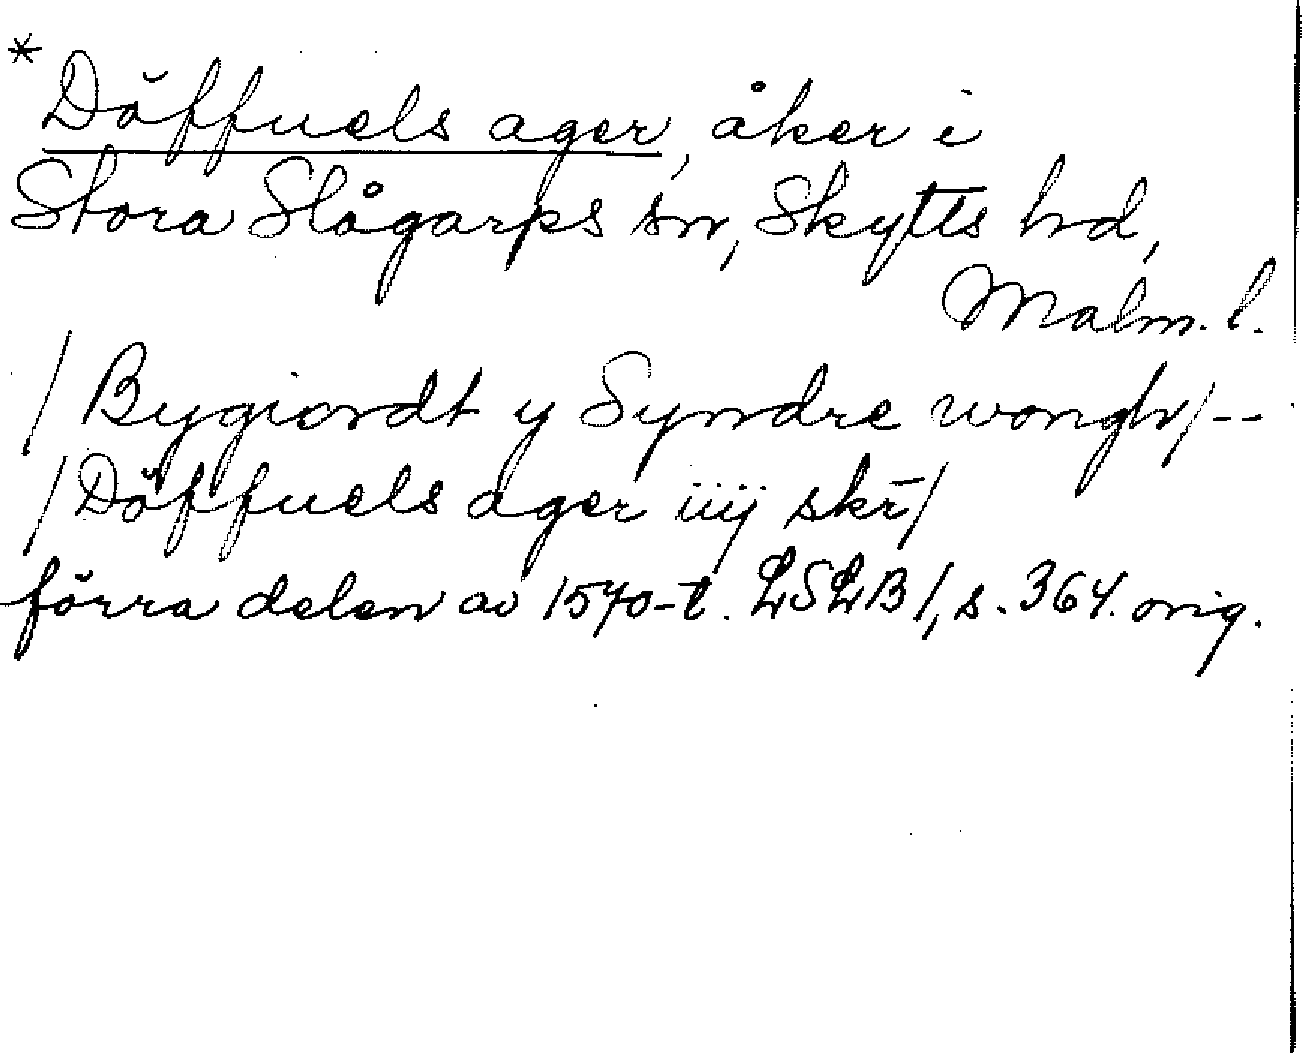 * Döffuels ager, åker i
Stora Slågarps sn, Skytts hd,
Malm. l.
/Bygiordt y Syndre wongh/--
/Döffuels ager iiij skr̄/
förra delen av 1570-t. LSLB 1, s. 364. orig.